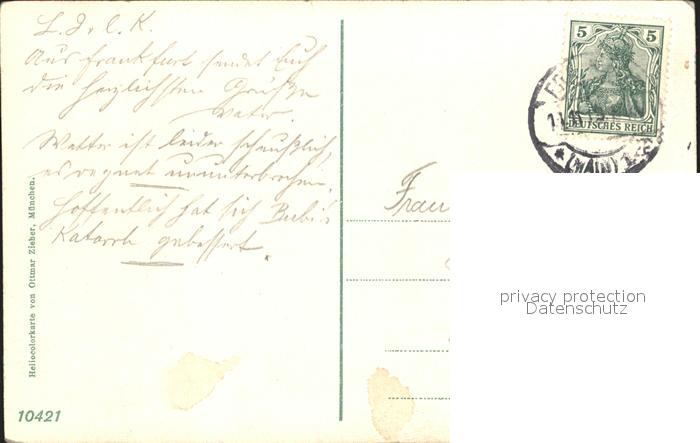 L. J. u. L. K.
Aus Frankfurt sendet Euch
die herzlichsten Grüße
Vater.
Wetter ist leider scheußlich,
es regnet ununterbrochen.
Hoffentlich hat sich Bubi's
Katarrh gebessert.
Heliocolorkarte von Ottmar Zieher, München.
10421
5 5
DEUTSCHES REICH
* (MAIN) 1
Frau
privacy protection
Datenschutz